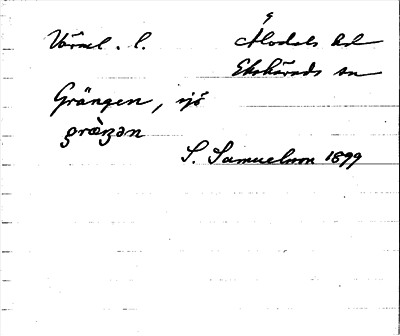 Värml. l.
Älvdals hd
Ekshärads sn
Grängen, sjö
græ̀ŋən
S. Samuelsson 1899